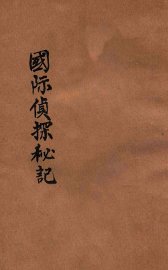 國际偵探秘記